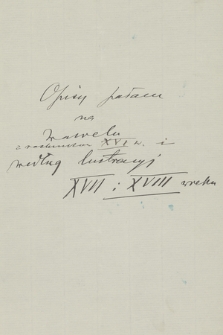 Opisy pałacu
na
Wawelu
z rachunków XVI w. i
według lustracyj
XVII i XVIII wieku